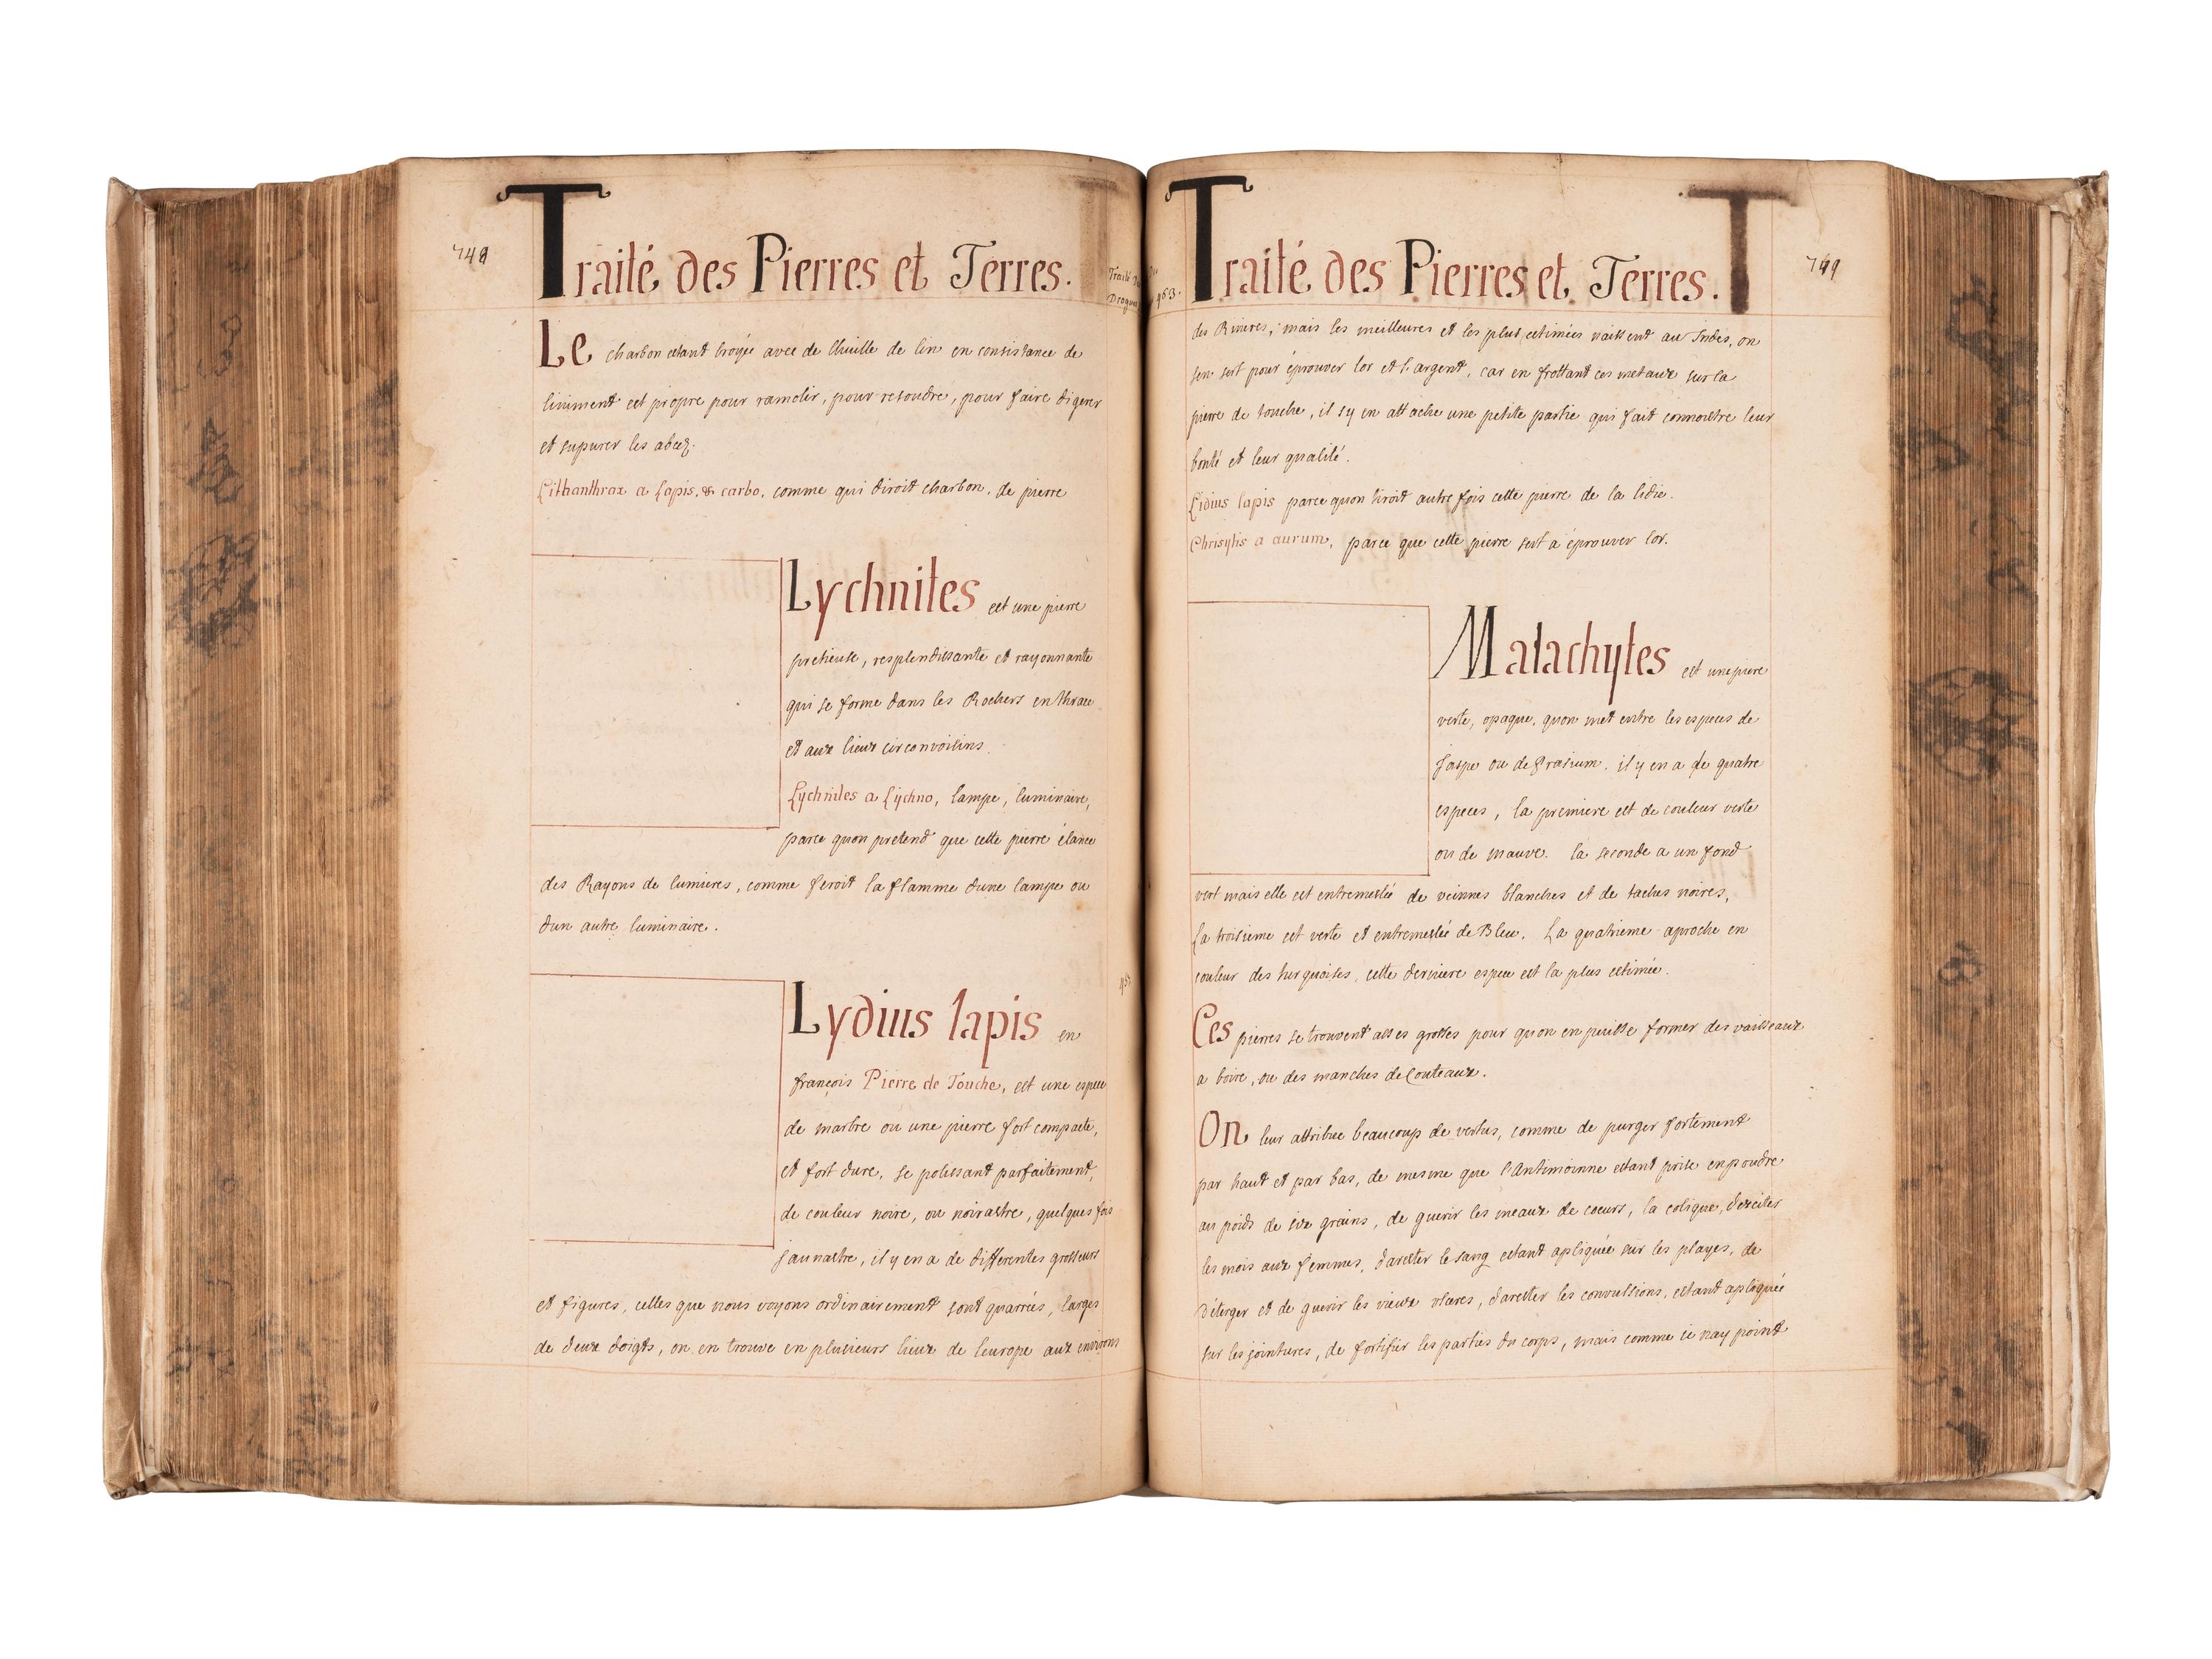 748
Traité des Pierres et Terres.
Le charbon estant broyée avec de lhuille de lin en consistance de
liniment est propre pour ramolir, pour resoudre, pour faire digerer
et supurer les abcez.
Lithanthrax a Lapis, & carbo, comme qui diroit charbon, de pierre
Lychnites est une pierre
pretieuse, resplendissante et rayonnante
qui se forme dans les Rochers en thrace
et aux lieux circonvoisins.
Lychnites a Lychno, lampe, luminaire,
parce quon pretend que cette pierre élance
des Rayons de lumieres, comme feroit la flamme dune lampe ou
dun autre luminaire.
Lydius lapis en
françois Pierre de Touche, est une espece
de marbre ou une pierre fort compacte,
et fort dure, se polissant parfaitement,
de couleur noire, ou noirastre, quelques fois
jaunastre, il y en a de differentes grosseurs
et figures, celles que nous voyons ordinairement sont quarrées, larges
de deux doigts, on en trouve en plusieurs lieux de leurope aux environs
Traité des
Drogues
963.
Traité des Pierres et Terres.
749
des Rivieres, mais les meilleures et les plus estimées naissent au Indes, on
sen sert pour éprouver lor et l'argent, car en frottant ces metaux sur la
pierre de touche, il sy en attache une petite partie qui fait connoistre leur
bonté et leur qualité.
Lidius lapis parce quon tiroit autre fois cette pierre de la lidie.
Chrisytis a aurum, parce que cette pierre sert a éprouver lor.
Malachytes est une piere
verte, opaque, quon met entre les especes de
Jaspe ou de Prasium. il y en a de quatre
especes, la premiere est de couleur verte
ou de mauve. la seconde a un fond
vert mais elle est entremeslée de veinnes blanches et de taches noires,
La troisieme est verte et entremeslée de Bleu. La quatrieme aproche en
couleur des turquoises, cette derniere espece est la plus estimée.
Ces pierres se trouvent asses grosses pour quon en puisse former des vaisseaux
a boire, ou des manches de Couteaux.
On leur attribue beaucoup de vertus, comme de purger fortement
par haut et par bas, de mesme que l'Antimoinne estant prise en poudre
au poids de six grains, de guerir les meaux de coeurs, la colique, d'exciter
les mois aux femmes, d'arester le sang estant apliquée sur les playes, de
déterger et de guerir les vieux vlceres, d'arester les convulsions, estant apliquée
sur les jointures, de fortifier les parties du corps, mais comme ie nay point